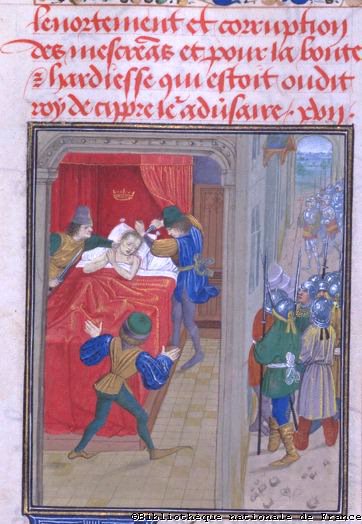 lenortement et corruption
des mescreãs et pour la bonte
& hardiesse qui estoit oudit
roy de cippre leᵉ adũsaire . xvii .
©Bibliothèque nationale de France